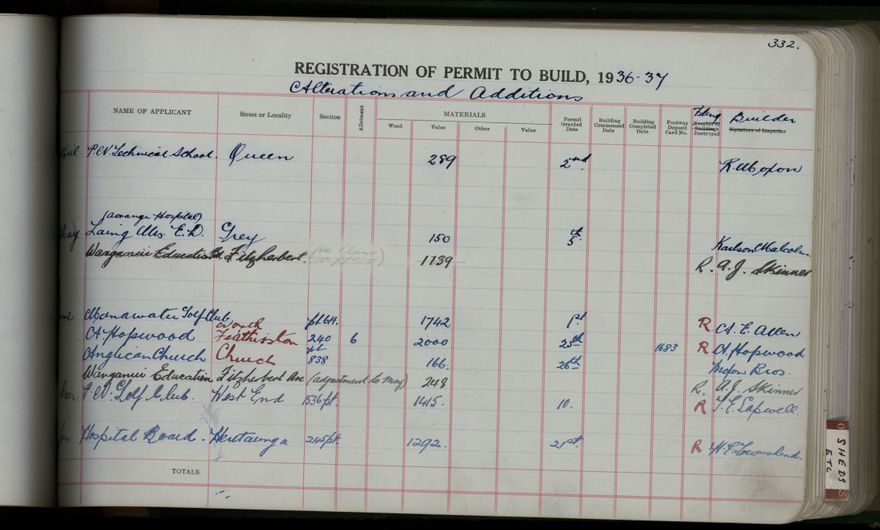 332.
REGISTRATION OF PERMIT TO BUILD, 1936-37
Alterations and Additions
NAME OF APPLICANT Street or Locality Section Allotment MATERIALS Wood Value Other Value Permit Granted Date Building Commenced Date Building Completed Date Footway Deposit Card No. Number of Buildings Destroyed Builder Signature of Inspector
P.N. Technical School. Queen 289 2nd
(Aorangi Hospital)
Laing Mrs E.D. Grey 150 5th Karlson & Malcolm
Wanganui Education Bd Fitzherbert 1139 R. A.J. Skinner
Manawatu Golf Club pt 64. 1742 1st R A. E. Allen
North
A. Hopwood Featherston 240 6 2000 25th 1683 R A. Hopwood
Anglican Church Church pt 838 166. 26th Bros.
Wanganui Education Fitzherbert Ave (adjustment to May) 248 R. A.J. Skinner
P.N. Golf Club. West End 1536 pt. 1415. 10. R
Hospital Board. Heretaunga 245 pt. 1292. 21st. R
TOTALS
SHEDS ETC